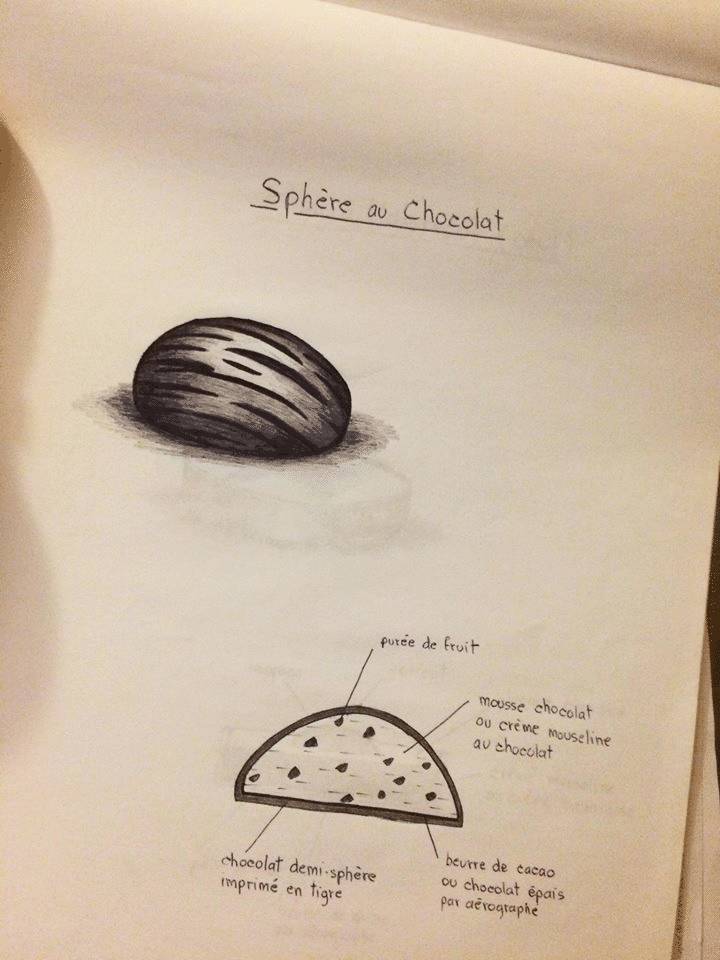 Sphère au Chocolat
purée de fruit
mousse chocolat
ou crème mouseline
au chocolat
chocolat demi-sphère
imprimé en tigre
beurre de cacao
ou chocolat épais
par aérographe